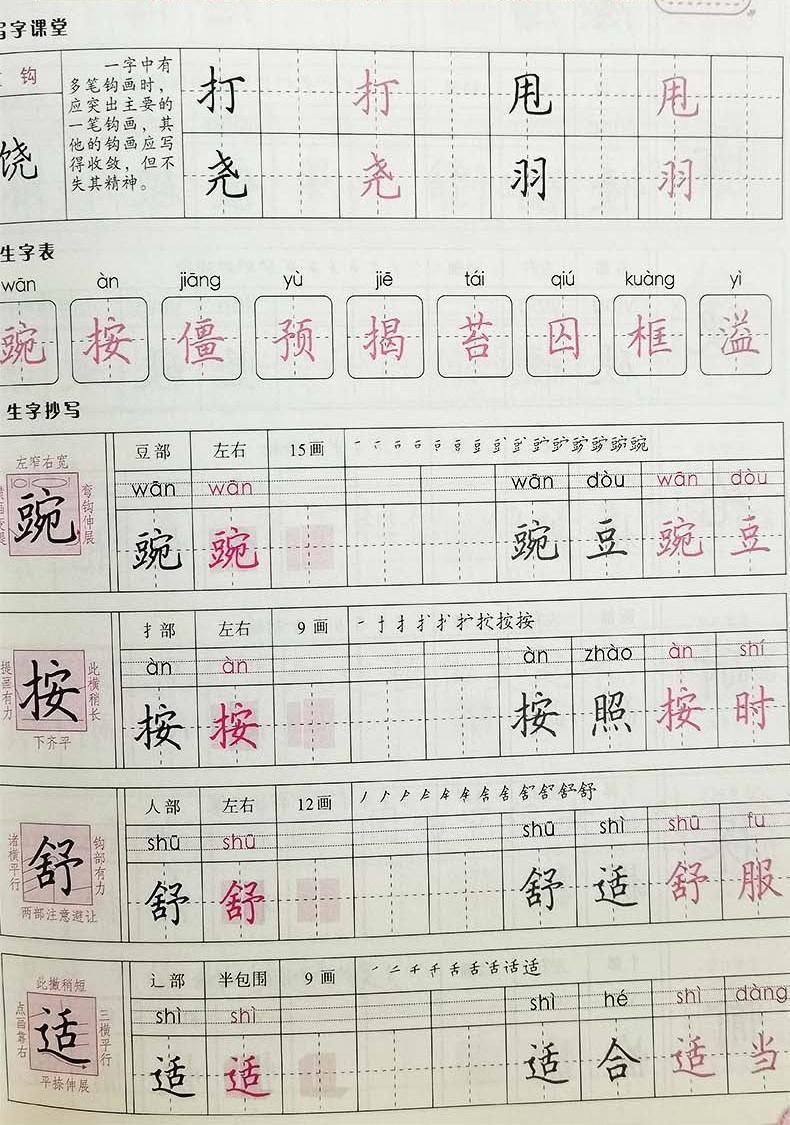 写字课堂
钩
一字中有
多笔钩画时，
应突出主要的
一笔钩画，其
他的钩画应写
得收敛，但不
失其精神。
饶
打 打 甩 甩
尧 尧 羽 羽
生字表
wān àn jiāng yù jiē tái qiú kuàng yì
豌 按 僵 预 揭 苔 囚 框 溢
生字抄写
左窄右宽
弯钩伸展
豌
豆部 左右 15画
wān wān wān dòu wān dòu
豌 豌 豌 豆 豌 豆
提画有力
此横稍长
按
下齐平
扌部 左右 9画
àn àn àn zhào àn shí
按 按 按 照 按 时
诸横平行
钩部有力
舒
两部注意避让
人部 左右 12画
shū shū shū shì shū fu
舒 舒 舒 适 舒 服
此撇稍短
点画靠右
三横平行
适
平捺伸展
辶部 半包围 9画
shì shì shì hé shì dàng
适 适 适 合 适 当